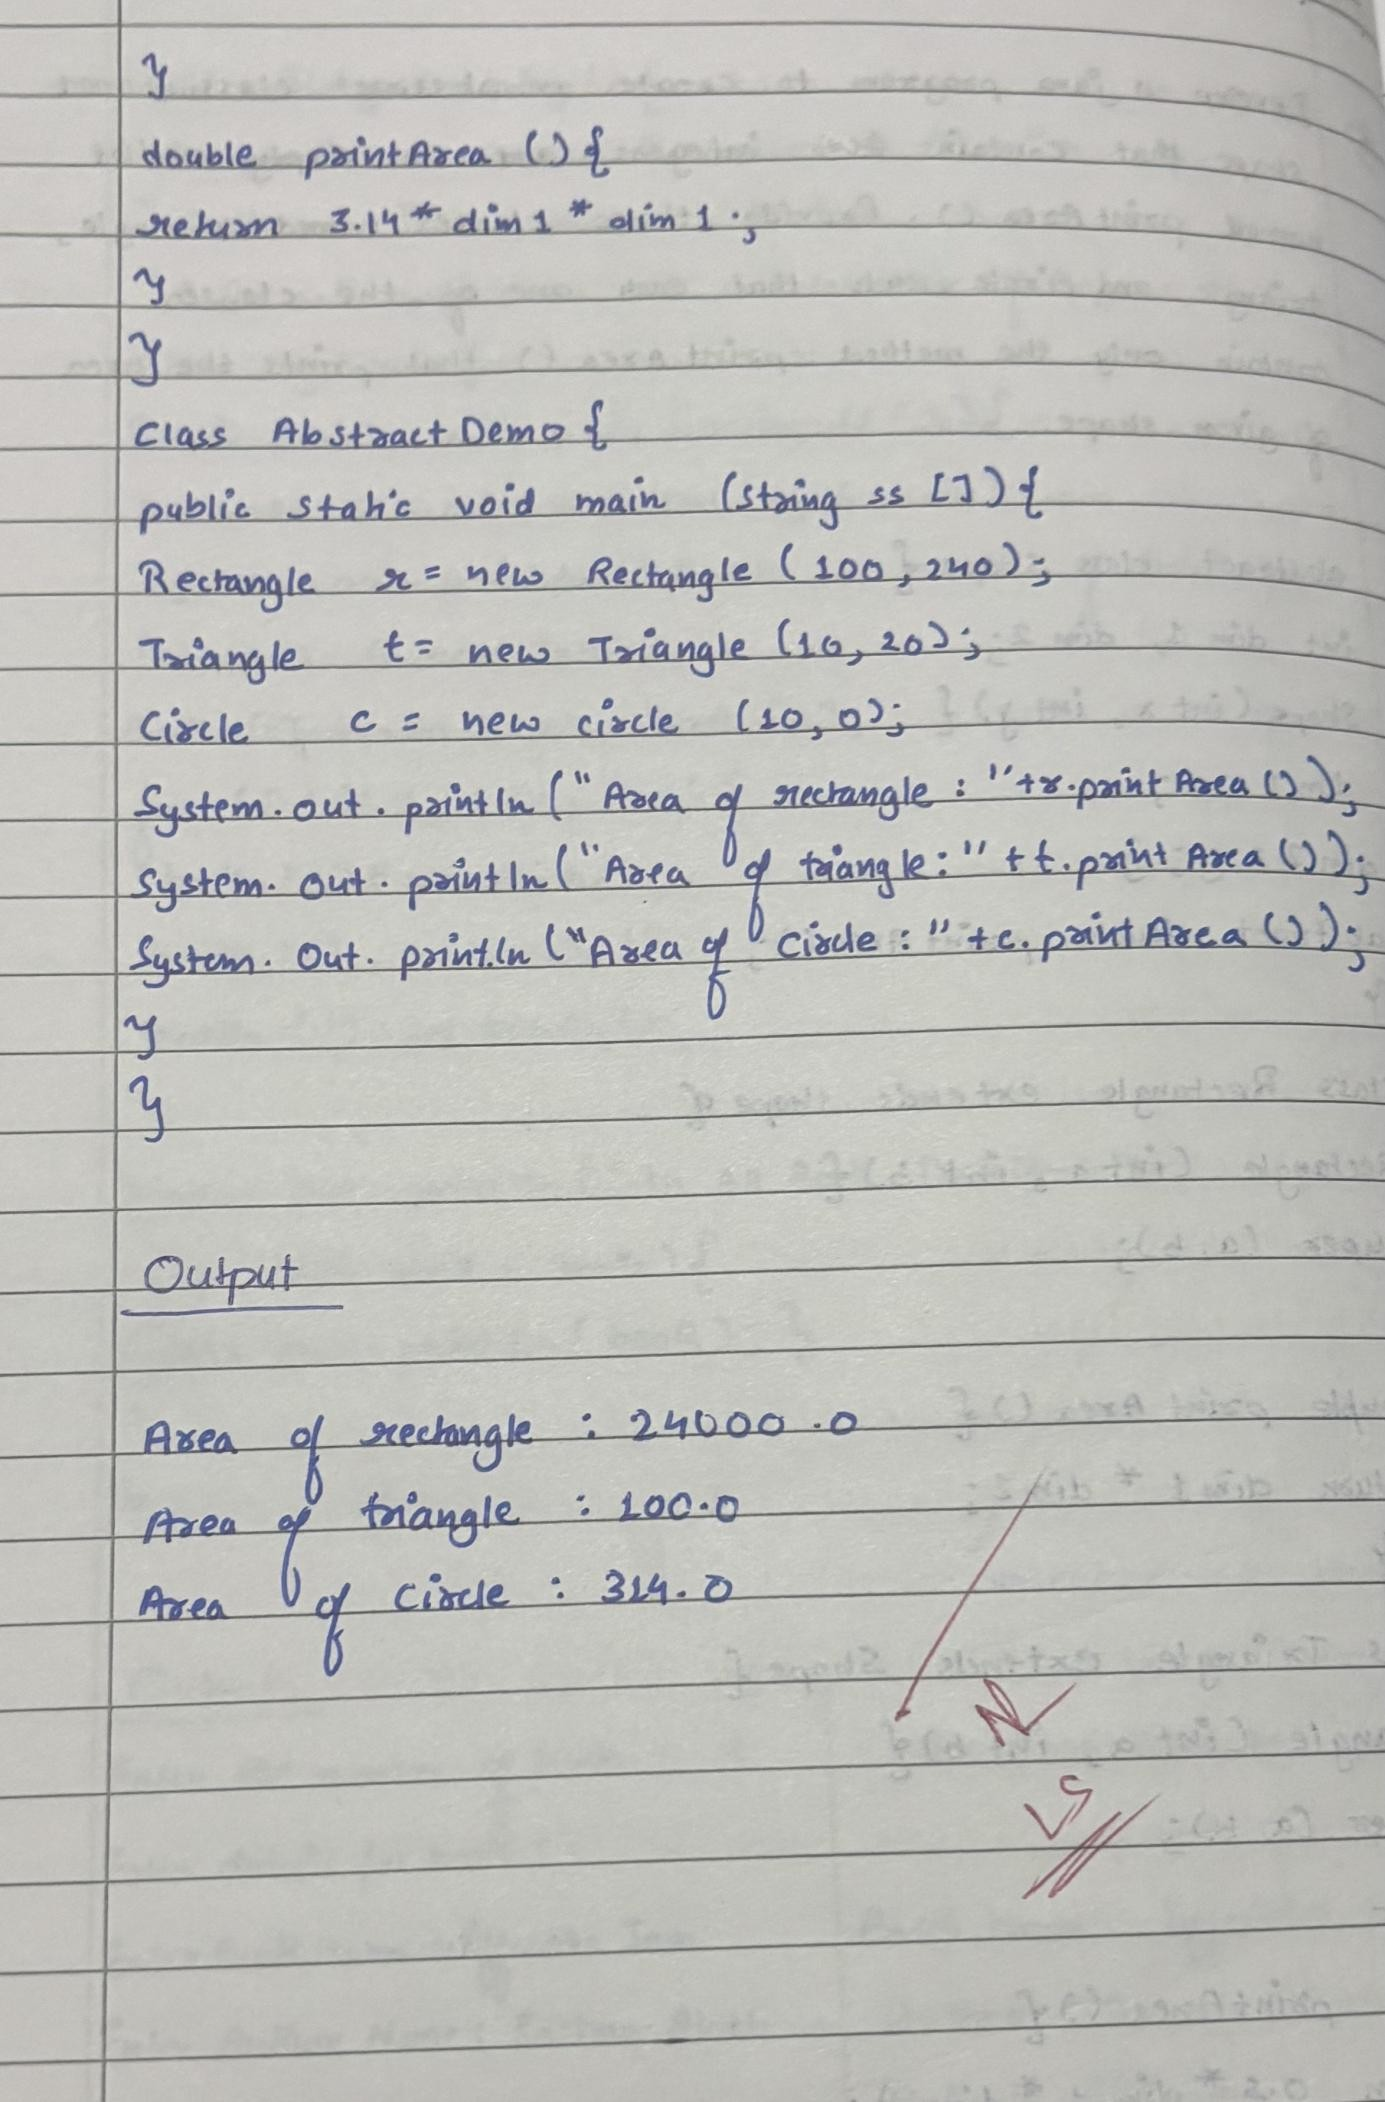 }
double printArea () {
return 3.14 * dim1 * dim1 ;
}
}
Class Abstract Demo {
public static void main (String ss []) {
Rectangle r = new Rectangle (100, 240);
Triangle t = new Triangle (10, 20);
Circle c = new circle (10, 0);
System. out. println ("Area of rectangle : "+r.print Area ());
System. out. println ("Area of triangle: " + t. print Area ());
System. Out. println ("Area of circle : " +c. print Area ());
}
}
Output
Area of rectangle : 24000.0
Area of triangle : 100.0
Area of circle : 314.0